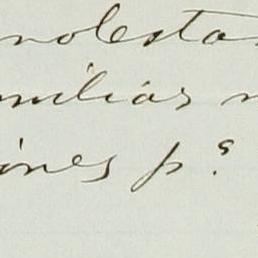 molesta
milias
ines p.s